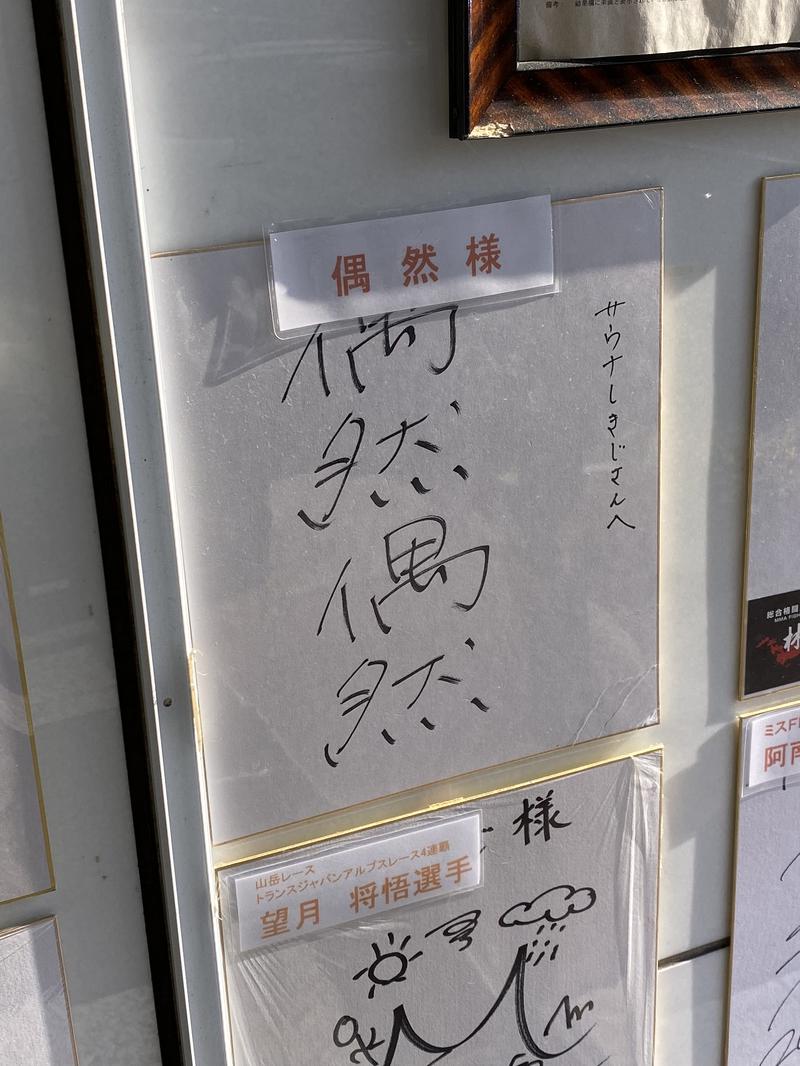 偶然様
偶然偶然
サウナしきじさんへ
様
山岳レース
トランスジャパンアルプスレース4連覇
望月 将悟選手
総合格闘
MMA FIGH
ミスF
阿南